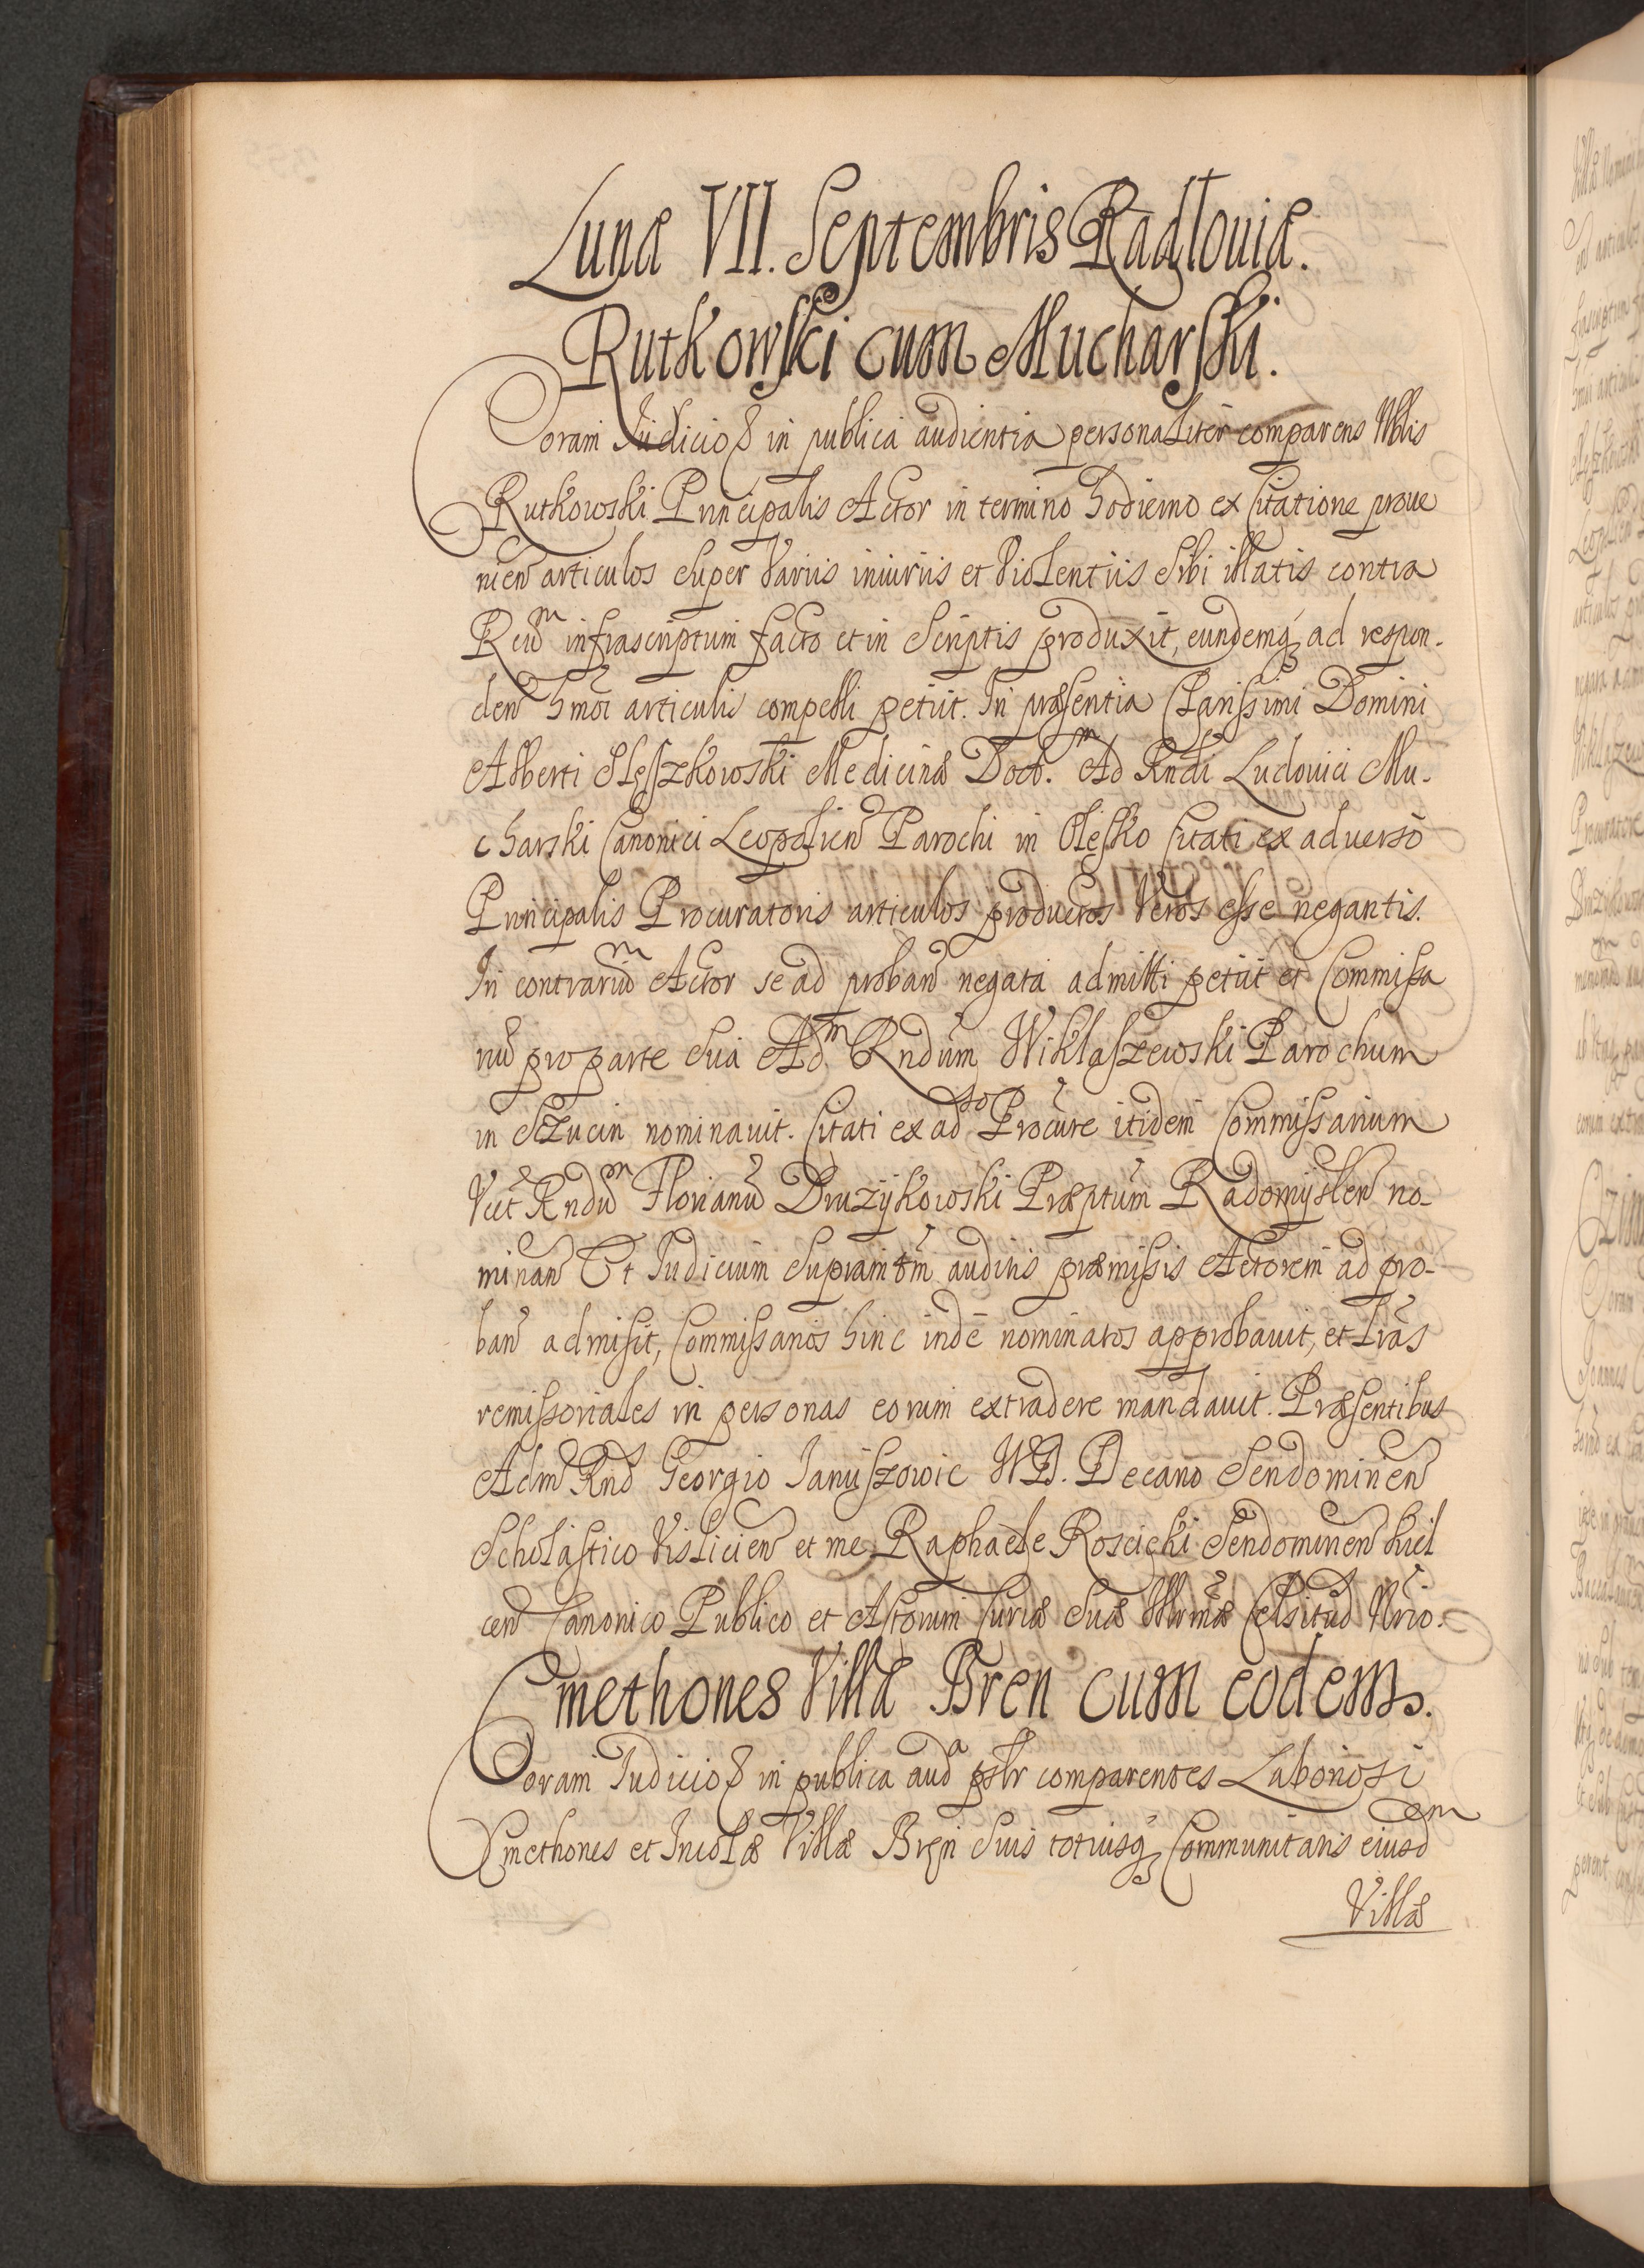 Lunæ VII. Septembris Radłouiæ.
Rutkowski cum Mucharski.
Coram Iudicio &c in publica audientia personaliter comparens Nblis
Rutkowski Principalis Actor in termino hodierno ex Citatione proue
nien articulos super varijs iniurijs et violentijs sibi illatis contra
Reum infrascriptum facto et in scriptis produxit, eundemq; ad respon-
den hmoi articulis compelli petijt. In præsentia Clarissimi Domini
Alberti Slęszkowski Medicinæ Doct. Adm Rndi Ludouici Mu-
charski Canonici Leopolien Parochi in Olesko Citati ex aduerso
Principalis Procuratoris articulos productos veros esse negantis.
In contrarium Actor se ad proban negata admitti petijt et Commissa
riu pro parte sua Adm Rndum Wiklaszewski Parochum
in Szczucin nominauit. Citati ex adso Procure itidem Commissarium
Vut Rndum Florianu Druzÿkowski Præptum Radomÿslen no-
minan Et Iudicium supramtm auditis præmissis Actorem ad pro-
ban admisit, Commissarios hinc inde nominatos approbauit, et lras
remissoriales in personas eorum extradere mandauit. Præsentibus
Adm Rnd Georgio Ianuszowic WD. Decano Sendominen
Scholastico Vislicien et me Raphaele Roscicki Sendominen kiel
cen Canonico Publico et Actorum Curiæ suæ Illrmæ Celsitud Nrio.
Cmethones Villæ Bren cum eodem.
Coram Iudicio &c in publica auda pslr comparentes Laboriosi
Cmethones et Incolæ Villæ Bręn suis totiusq; Communitatis eiusdem
Villæ